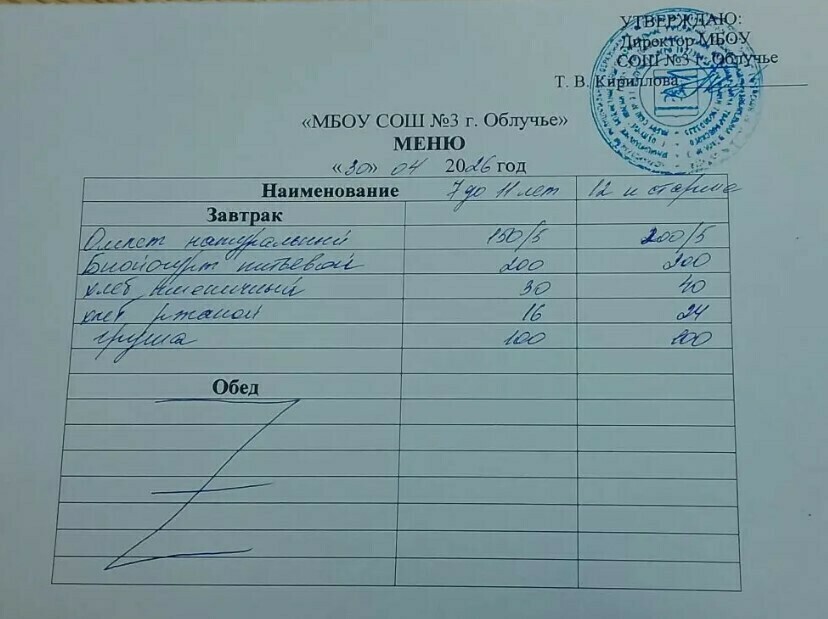 УТВЕРЖДАЮ:
Директор МБОУ
СОШ №3 г. Облучье
Т. В. Кириллова
«МБОУ СОШ №3 г. Облучье»
МЕНЮ
«30» 04 2026 год
Наименование 7 до 11 лет 12 и старше
Завтрак
Омлет натуральный 150/5 200/5
Биойогурт питьевой 200 200
хлеб пшеничный 30 40
хлеб ржаной 16 24
груша 100 100
Обед